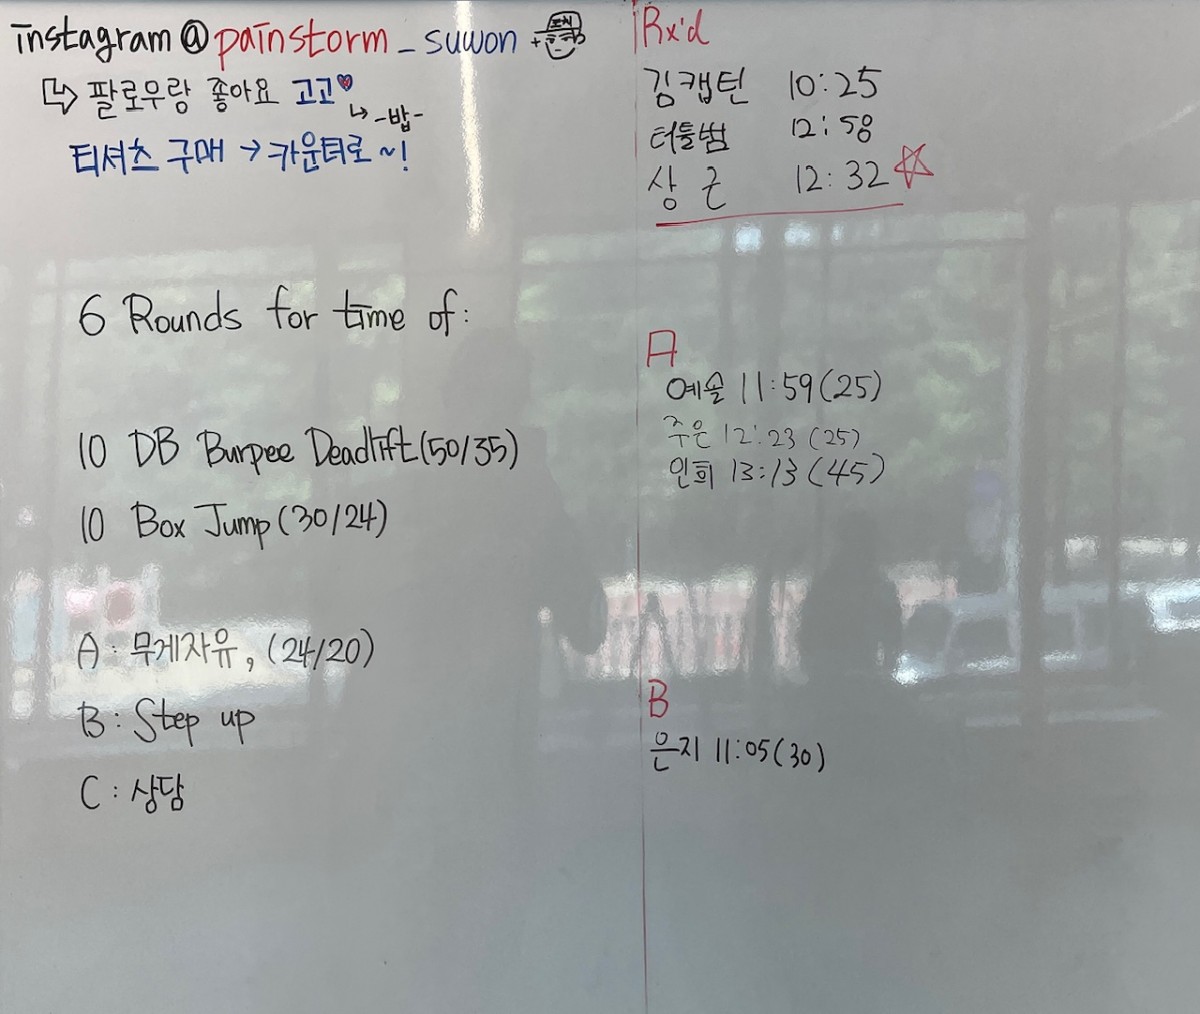 instagram @painstorm_suwon
팔로우랑 좋아요 고고
-밥-
티셔츠 구매 → 카운터로~!
6 Rounds for time of:
10 DB Burpee Deadlift(50/35)
10 Box Jump(30/24)
A: 무게자유, (24/20)
B: Step up
C: 상담
Rx'd
김캡틴 10:25
터틀범 12:58
상근 12:32
A
예솔 11:59(25)
주은 12:23 (25)
인희 13:13(45)
B
은지 11:05(30)